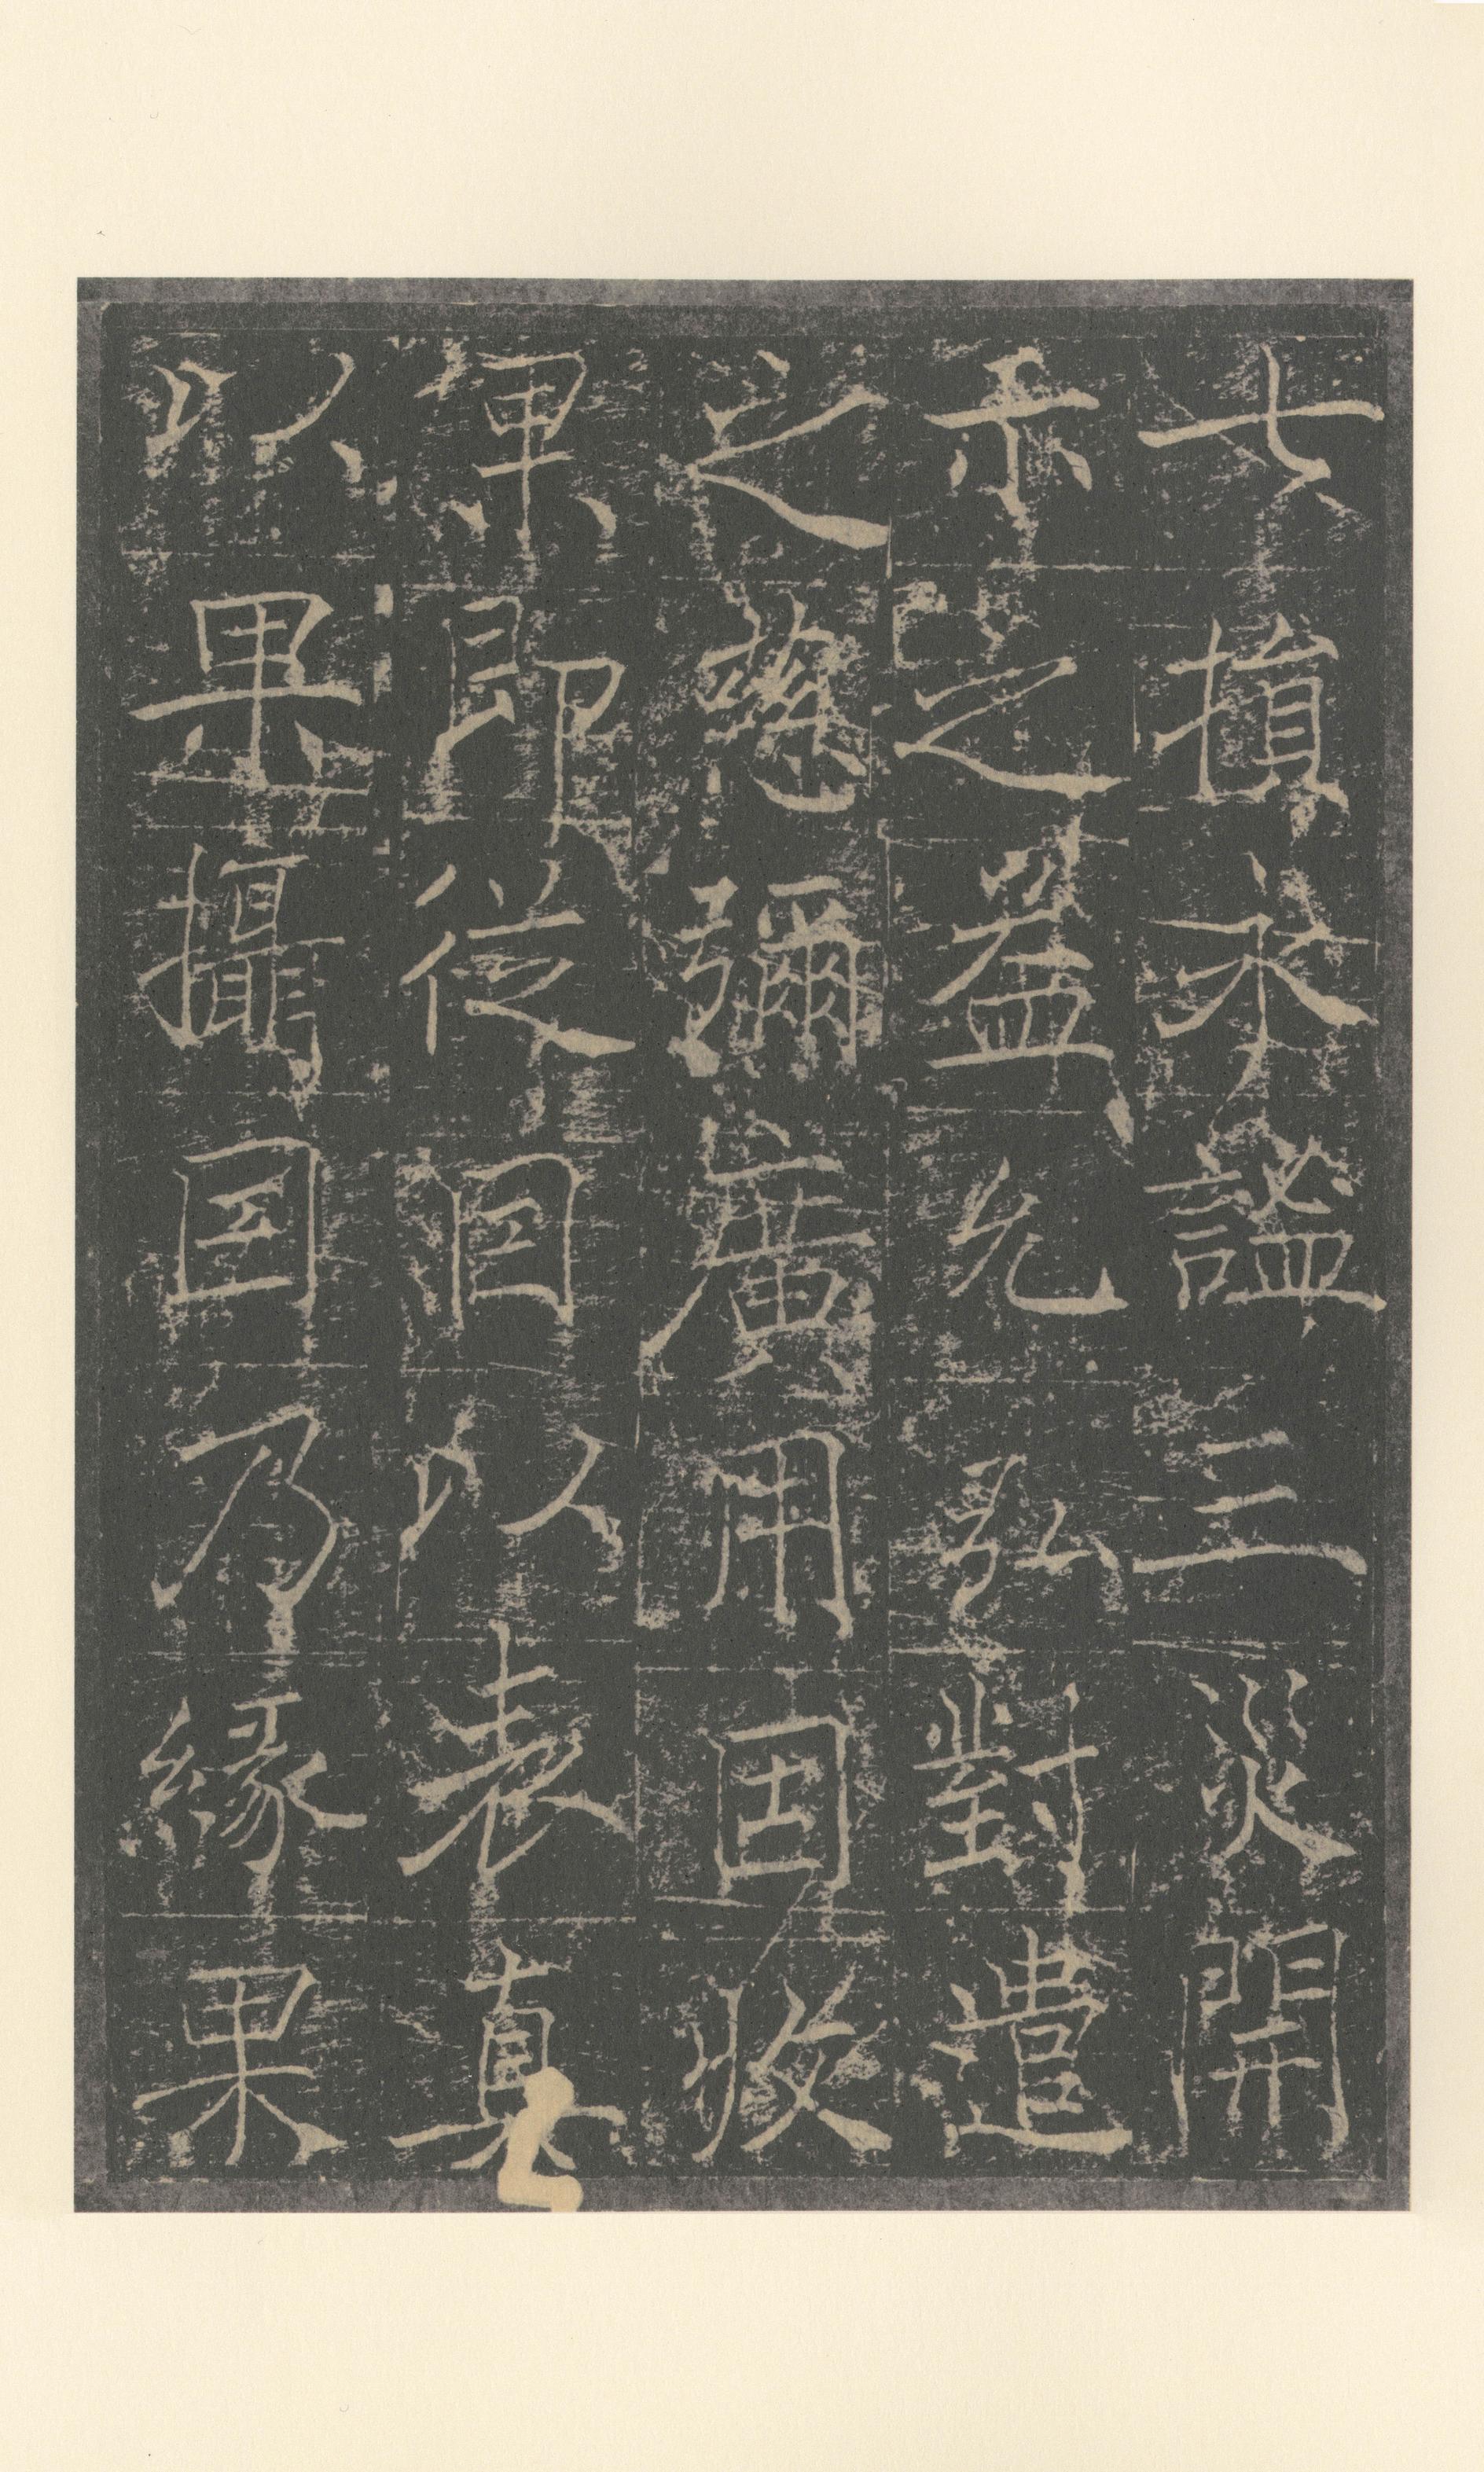 七損永謐三災開
示之益允弘對遣
之慈彌廣用因收
果即從因以表真
以果攝因乃緣果